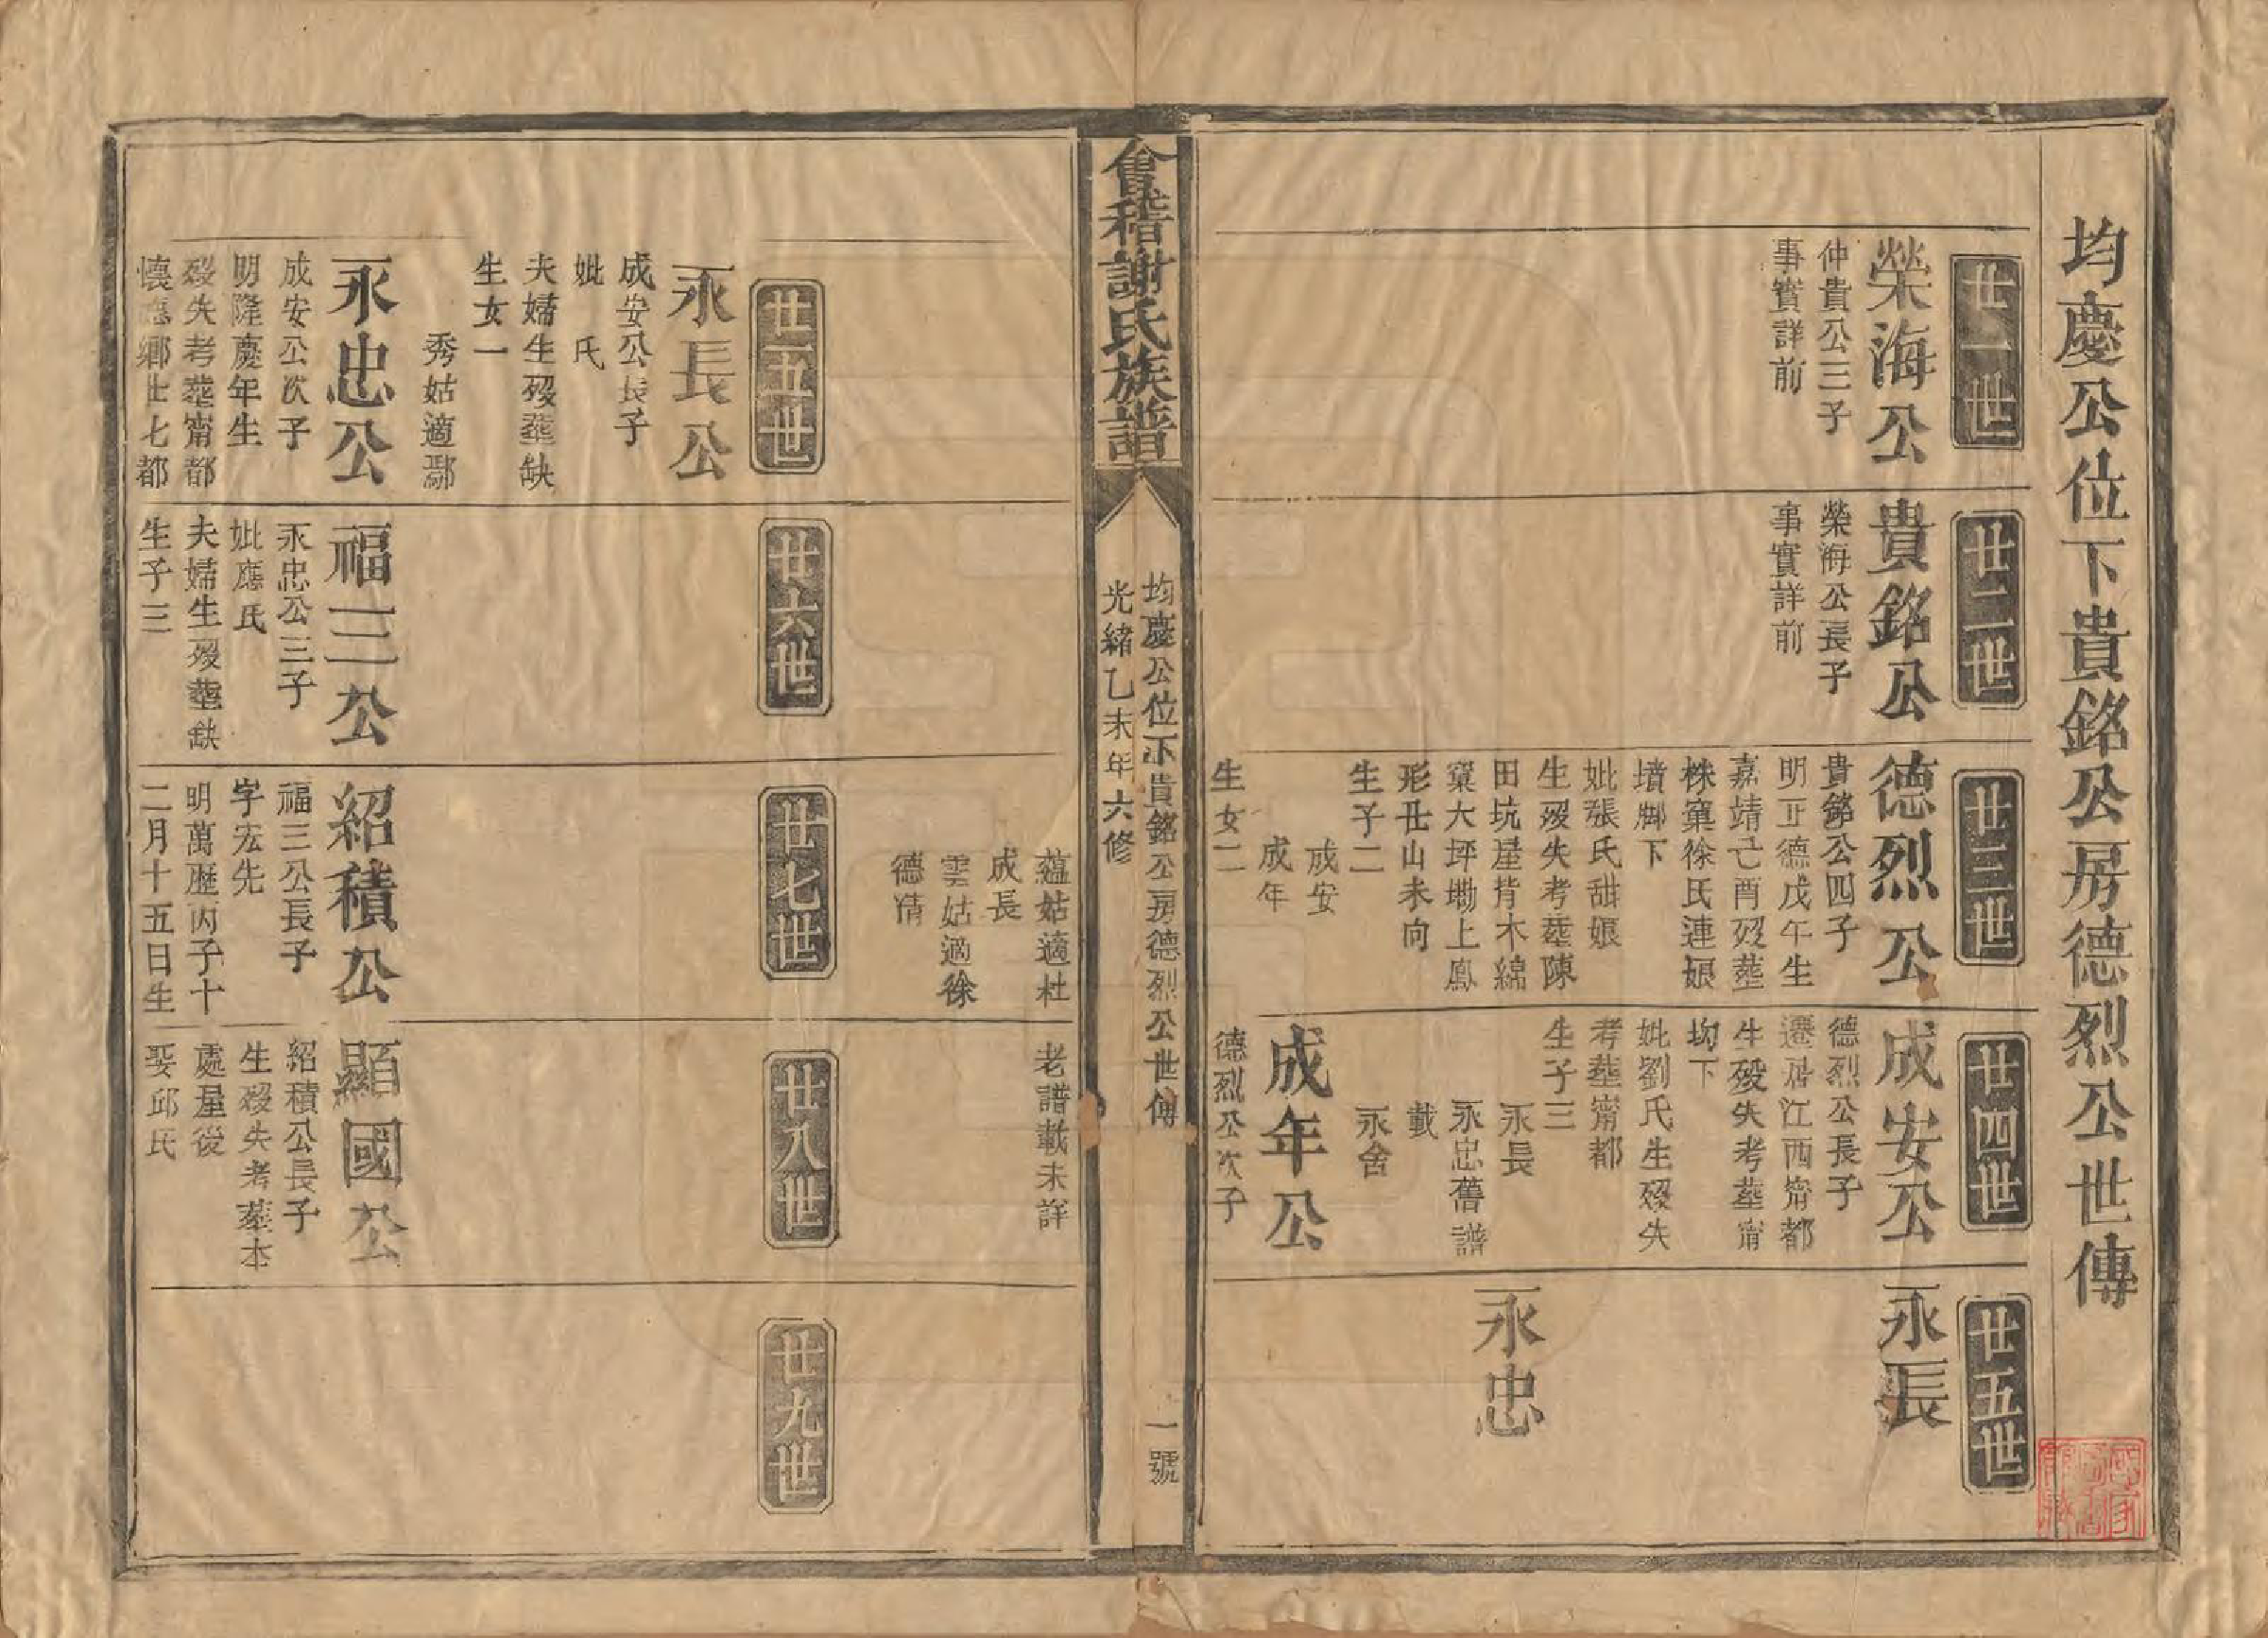 均慶公位下貴銘公房德烈公世傳
廿一世
榮海公
仲貴公三子
事實詳前
廿二世
貴銘公
榮海公長子
事實詳前
廿三世
德烈公
貴銘公四子
明正德戊午生
嘉靖己酉歿葬
株窠徐氏連娘
墳脚下
妣張氏甜娘
生歿失考葬陳
田坑屋背木綿
窠大坪墈上鳳
形丑山未向
生子二
成安
成年
生女二
廿四世
成安公
德烈公長子
遷居江西甯都
生歿失考葬甯
坳下
妣劉氏生歿失
考葬甯都
生子三
永長
永忠舊譜
載
永舍
成年公
德烈公次子
廿五世
永長
永忠
會稽謝氏族譜
均慶公位下貴銘公房德烈公世傳
光緒乙未年六修
一號
蘊姑適杜
成長
雲姑適徐
德精
老譜載未詳
廿五世
永長公
成安公長子
妣 氏
夫婦生歿葬缺
生女一
秀姑適鄢
永忠公
成安公次子
明隆慶年生
歿失考葬甯都
懷德鄉廿七都
廿六世
福三公
永忠公三子
妣應氏
夫婦生歿葬缺
生子三
廿七世
紹積公
福三公長子
字宏先
明萬歷丙子十
二月十五日生
廿八世
顯國公
紹積公長子
生歿失考葬本
處屋後
娶邱氏
廿九世